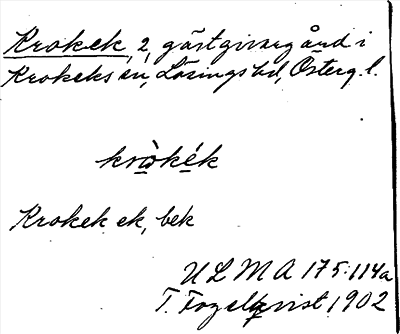 Krokek, 2, gästgivaregård i
Krokeks sn, Lösings hd, Österg. l.
krò̱ké̱k
Krokek ek, bek
ULMA 175:114a
T. Fogelqvist 1902